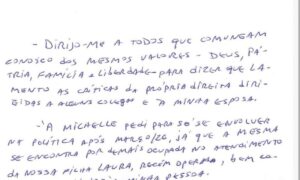 - DIRIJO-ME A TODOS QUE COMUNGAM
CONOSCO DOS MESMOS VALORES - DEUS, PÁ-
TRIA, FAMÍLIA e LIBERDADE - PARA DIZER QUE LA-
MENTO AS CRÍTICAS DA PRÓPRIA DIREITA DIRI-
GIDAS A ALGUNS COLEGAS E À MINHA ESPOSA.
- A MICHELLE PEDI PARA SÓ SE ENVOLVER
NA POLÍTICA APÓS MARÇO/26, JÁ QUE A MESMA
SE ENCONTRA POR DEMAIS OCUPADA NO ATENDIMENTO
DA NOSSA FILHA LAURA, RECÉM OPERADA, BEM CO-
MINHA PESSOA.